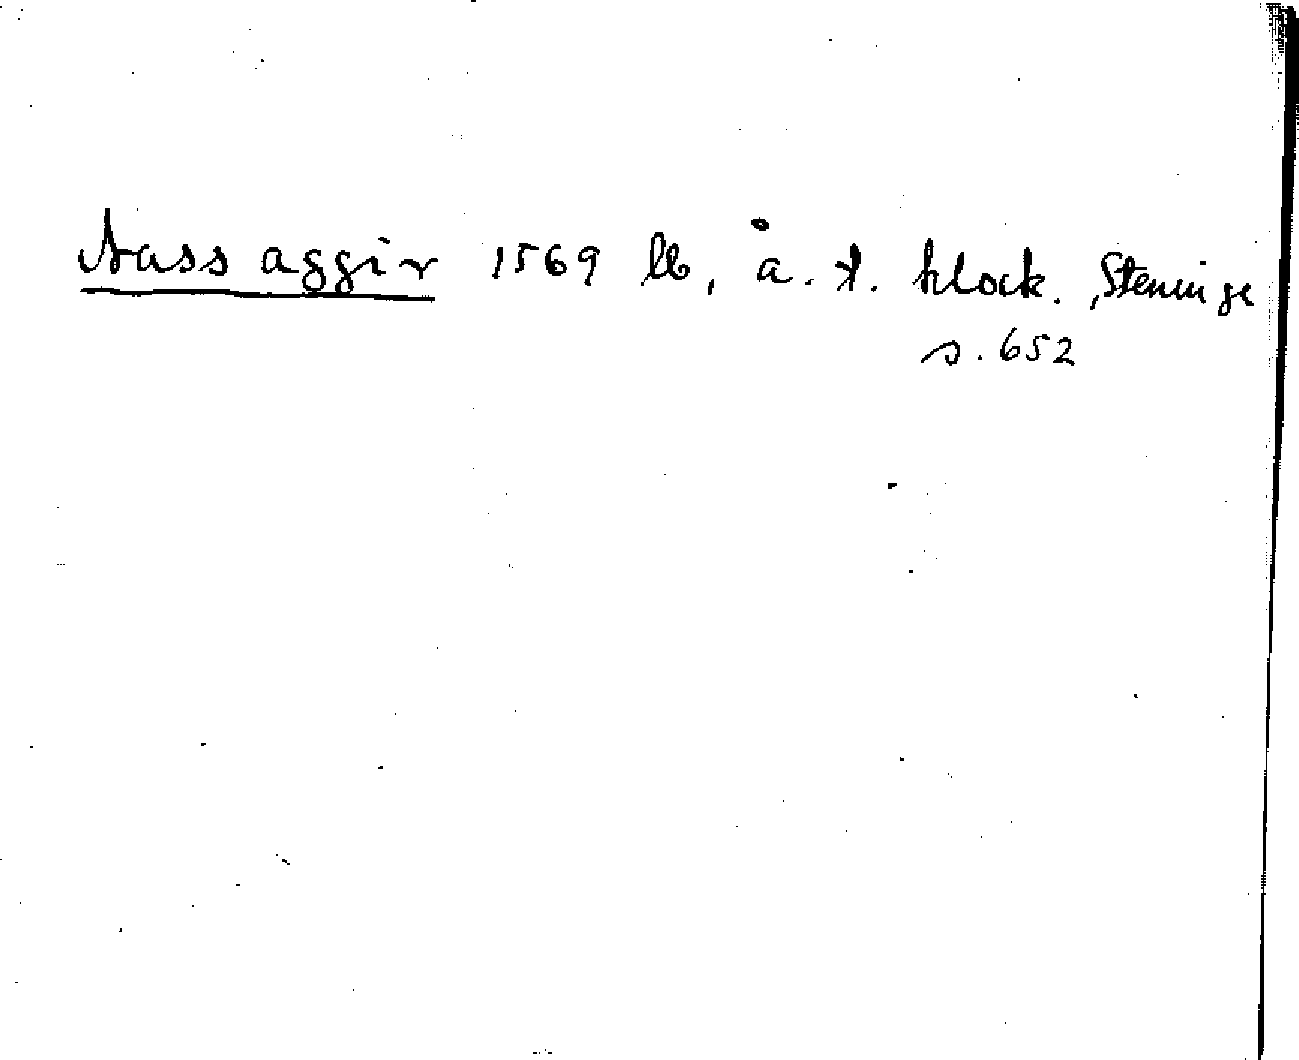 Aass aggir 1569 lb, å. t. klock., Steninge
s. 652